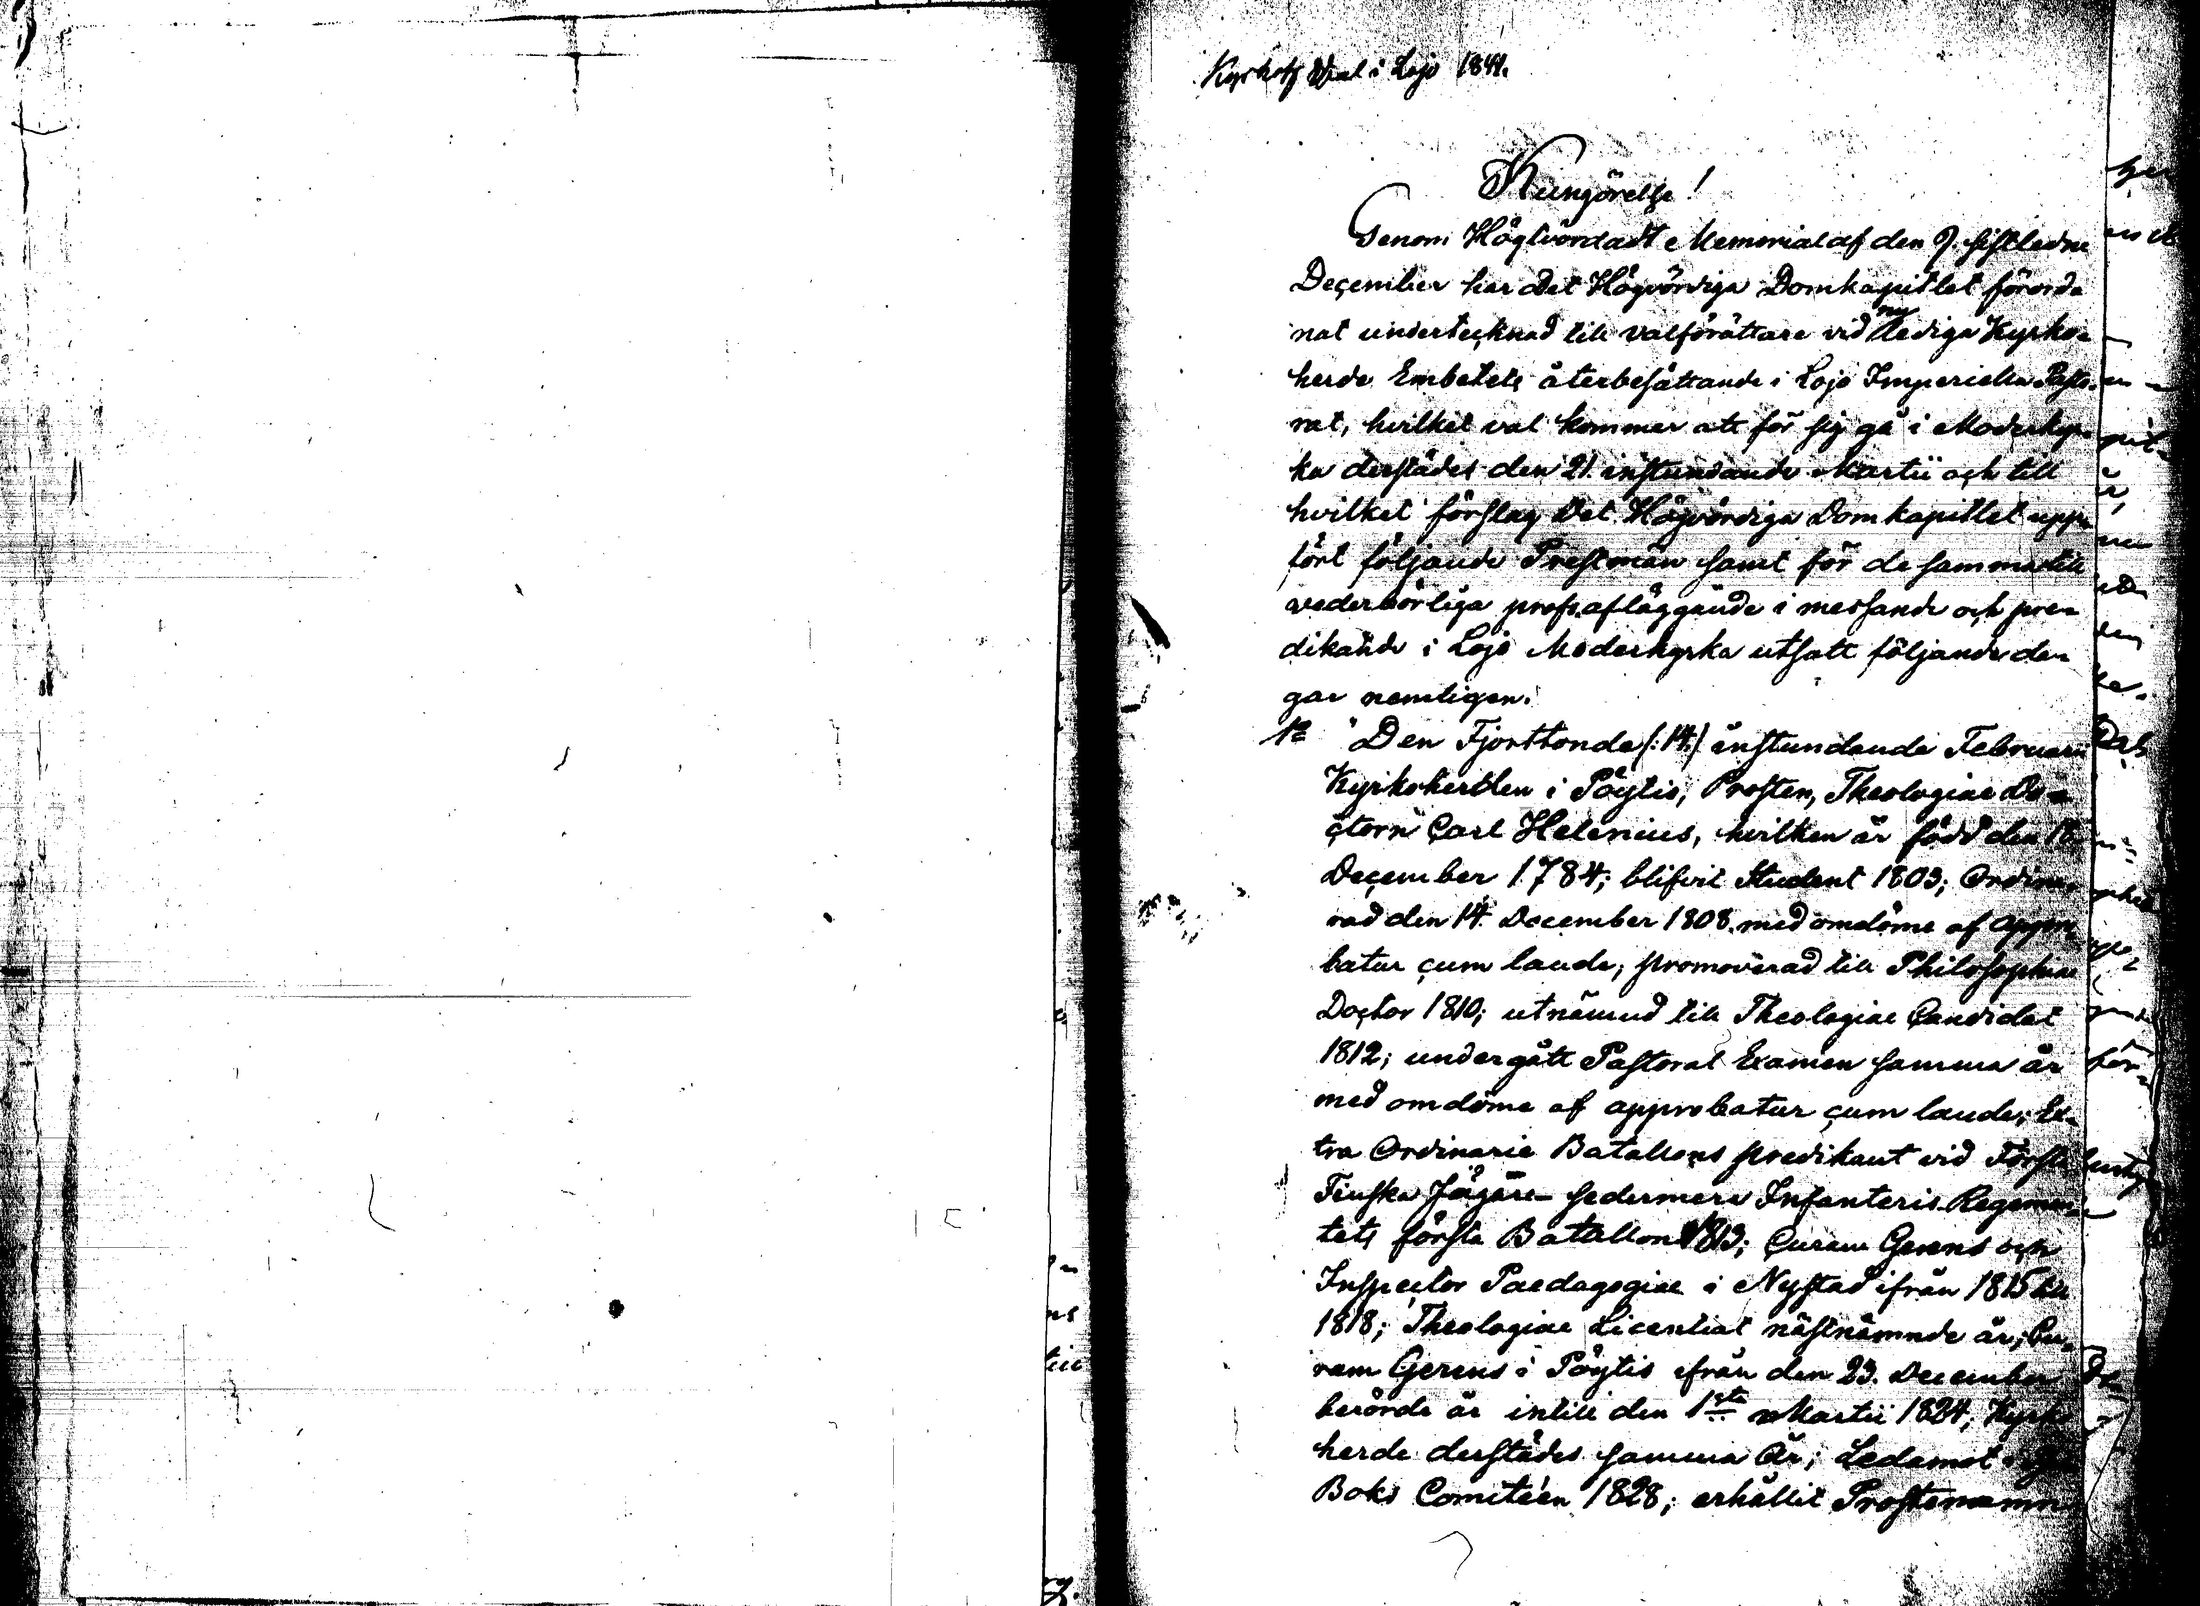 Kyrkohs Val i Lojo 1841.
Kungörelse!
Genom Högtvördadt Memorial af den 9. sistledne
December har det Högvördiga Domkapitlet förord-
nat undertecknad till valförättare vid ny lediga Kyrko-
herde Embetets återbesättande i Lojo Imperiella Pasto-
rat, hvilket val kommer att för sig gå i Moderkyr-
ka derstädes den 21. instundande Martii och till
hvilket förslag Det Högvördiga Domkapitlet upp-
fört följande Prestmän samt för de samma till
vederbörliga profs afläggande i messande och pre-
dikande i Lojo Moderkyrka utsatt följande da-
gar nemligen:
1o Den Fjorttonde (:14:) instundande Februarii
Kyrkoherden i Pöytis, Prosten, Theologiae Do-
ctorn Carl Helenius, hvilken är född den 18
December 1784; blifvit Student 1803; Ordine-
rad den 14. December 1808 med omdöme af appro-
batur cum laude; promoverad till Philosophiae
Doctor 1810; utnämnd till Theologiae Candidat
1812; undergått Pastoral Examen samma år
med omdöme af approbatur cum laude; Ex-
tra Ordinarie Batallions predikant vid Första
Finska Jägare- sedermera Infanteris Regemen-
tets första Batallion 1813; Curam Gerens och
Inspector Paedagogiae i Nystad ifrån 1815 till
1818; Theologiae Licentiat nästnämnde år; Cu-
ram Gerens i Pöytis ifrån den 23. December
berörde år intill den 1sta Martii 1824; Kyrko
herde derstädes samma År; Ledamot i
Boks Comitéen 1828; erhållit Prostenamn